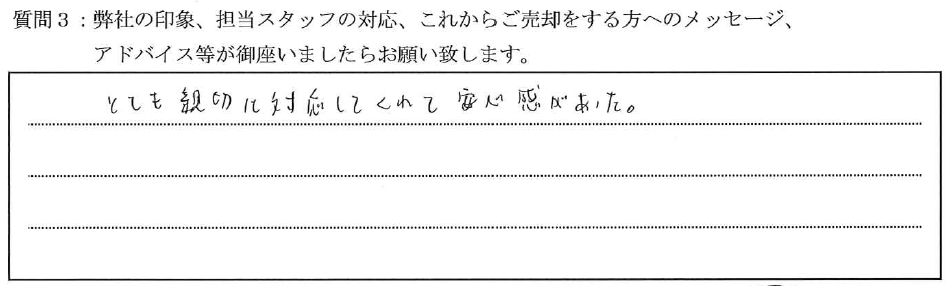 質問3:弊社の印象、担当スタッフの対応、これからご売却をする方へのメッセージ、
アドバイス等が御座いましたらお願い致します。
とても親切に対応してくれて安心感があった。